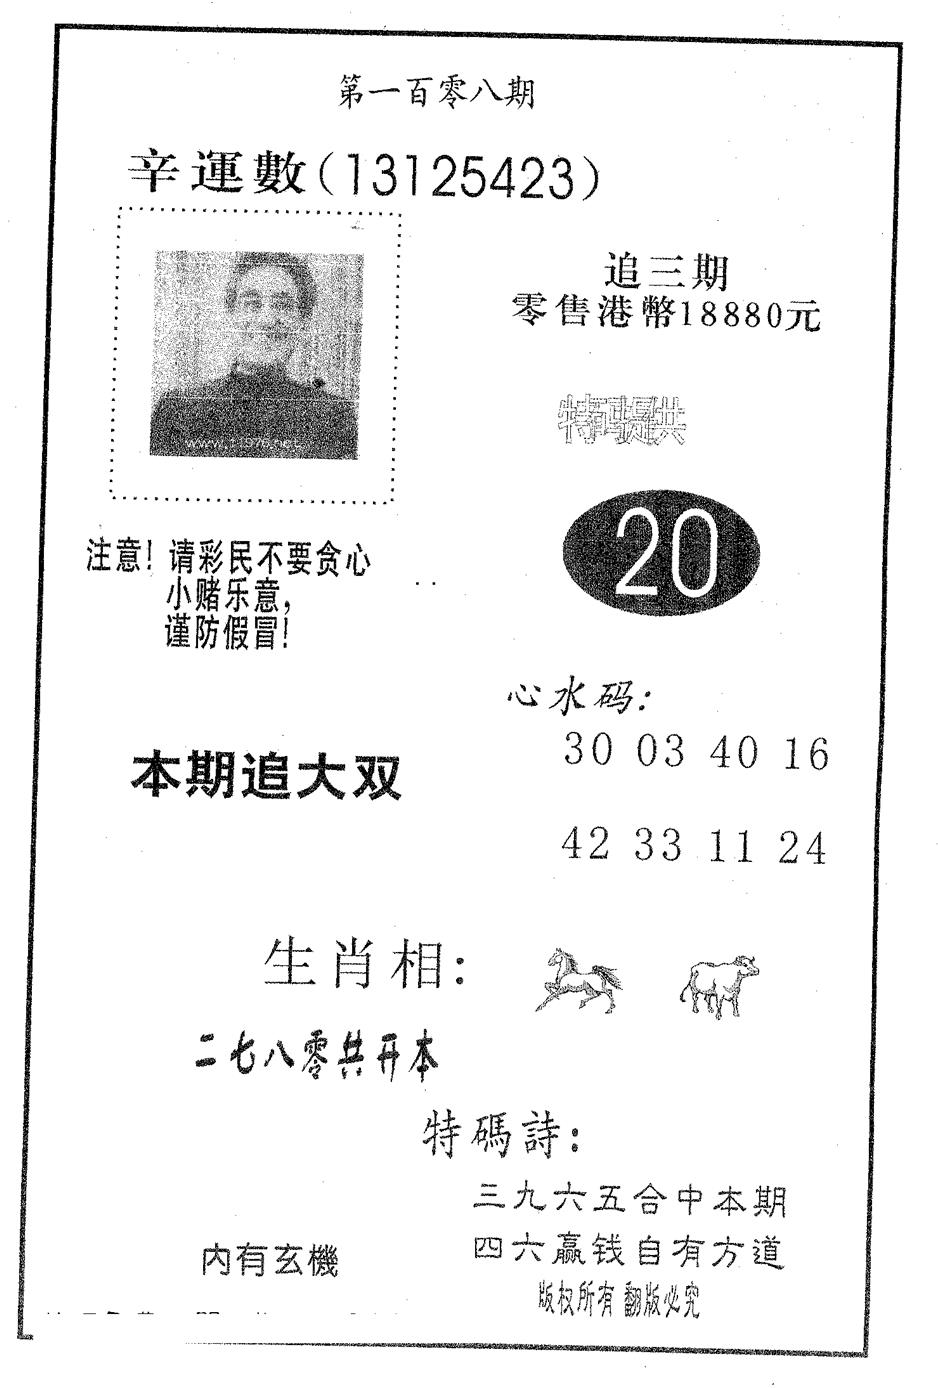 第一百零八期
辛運數(13125423)
追三期
零售港幣18880元
特码提供
20
注意！请彩民不要贪心
小赌乐意，
谨防假冒！
心水码：
30 03 40 16
本期追大双
42 33 11 24
生肖相：
二七八零共开本
特碼詩：
三九六五合中本期
四六赢钱自有方道
内有玄機
版权所有 翻版必究